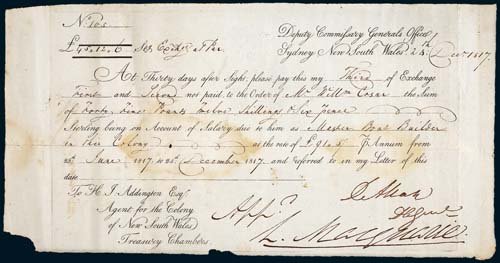 £45..12..6
Deputy Commissary Generals Office
Sydney New South Wales 26th Decr 1817
At Thirty days after Sight, please pay this my Third of Exchange
First and Second not paid to the Order of Mr Willm Cosar the Sum
of Forty Five Pounds Twelve Shillings & Six pence
Sterling being on Account of Salary due to him as Master Boat Builder
in this Colony at the rate of Annum from
25th June 1817 to 24th December 1817 and referred to in my Letter of this
date
To H J Addington Esqr
Agent for the Colony
of New South Wales
Treasury Chambers
Appd
D Allan
L. Macquarie